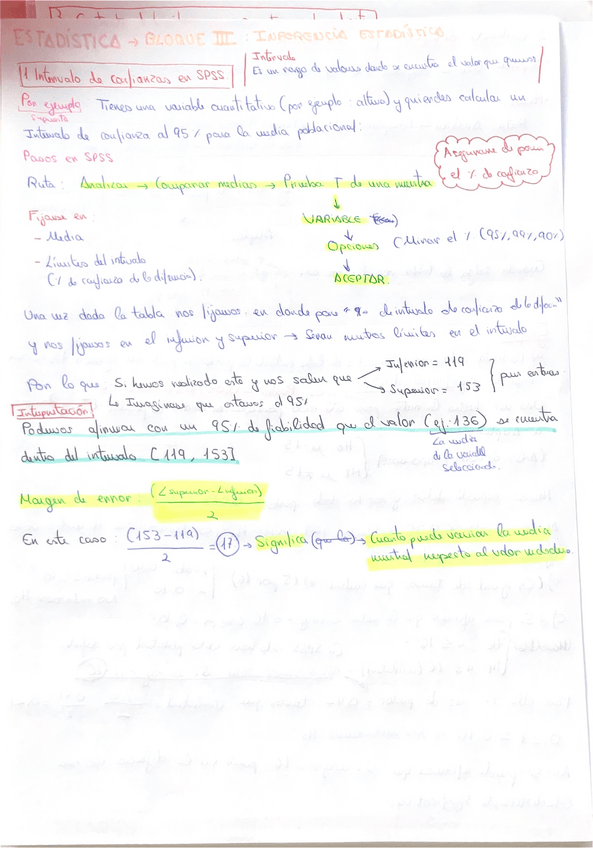 ESTADÍSTICA → BLOQUE III: INFERENCIA ESTADÍSTICA
1 Intervalo de confianzas en SPSS
Intervalo
Es un rango de valores donde se encuentra el valor que
Por ejemplo Tienes una variable cuantitativa (por ejemplo: altura) y quieres calcular un
Supuesto
Intervalo de confianza al 95% para la media poblacional:
Pasos en SPSS
Asegurarse de poner
el % de confianza
Ruta: Analizar → Comparar medias → Prueba T de una muestra
↓
VARIABLE
Fijarse en
↓
- Media
Opciones (Mirar el % (95%, 99%, 90%)
- Límites del intervalo
↓
(% de confianza de la diferencia).
ACEPTAR
Una vez dada la tabla nos fijamos en donde pone "% de intervalo de confianza de la difer..."
y nos fijamos en el inferior y superior → Serán nuestros límites en el intervalo
Por lo que Si hemos realizado esto y nos salen que → Inferior = 119
→ Superior = 153
↳ Imaginarse que estamos al 95%
Interpretación
Podemos afirmar con un 95% de fiabilidad que el valor (ej: 136) se encuentra
dentro del intervalo [119, 153]
La media
de la variable
seleccionada.
Margen de error: (L superior - L inferior) / 2
En este caso: (153 - 119) / 2 = 17 → Significa → Cuanto puede variar la media
muestral respecto al valor